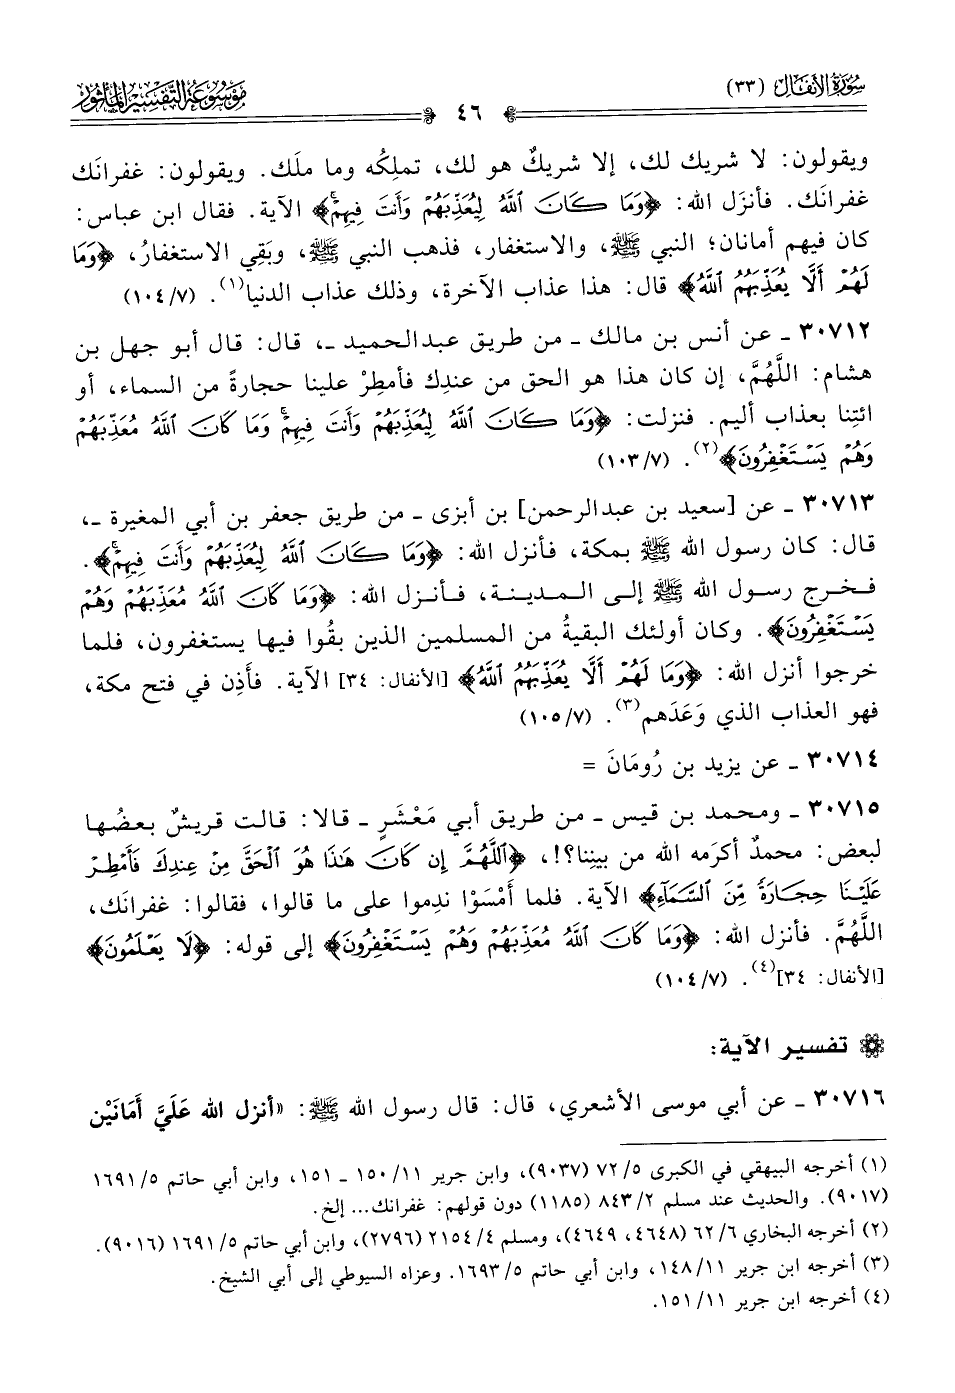 سُورَةُ الأَنفَال (٣٣)
٤٦
مَوْسُوعَةُ التَّفْسِيرِ المَأْثُور
ويقولون: لا شريك لك، إلا شريكٌ هو لك، تملِكُه وما ملَك. ويقولون: غفرانَك
غفرانَك. فأنزَل الله: ﴿وَمَا كَانَ ٱللَّهُ لِيُعَذِّبَهُمْ وَأَنتَ فِيهِمْۚ﴾ الآية. فقال ابن عباس:
كان فيهم أمانان؛ النبي ﷺ، والاستغفار، فذهب النبي ﷺ، وبَقِي الاستغفارُ، ﴿وَمَا
لَهُمْ أَلَّا يُعَذِّبَهُمُ ٱللَّهُ﴾ قال: هذا عذاب الآخرة، وذلك عذاب الدنيا(١). (١٠٤/٧)
٣٠٧١٢ ـ عن أنس بن مالك ـ من طريق عبدالحميد ـ، قال: قال أبو جهل بن
هشام: اللَّهُمَّ، إن كان هذا هو الحق من عندِك فأمطِرْ علينا حجارةً من السماء، أو
ائتِنا بعذاب أليم. فنزلت: ﴿وَمَا كَانَ ٱللَّهُ لِيُعَذِّبَهُمْ وَأَنتَ فِيهِمْۚ وَمَا كَانَ ٱللَّهُ مُعَذِّبَهُمْ
وَهُمْ يَسْتَغْفِرُونَ﴾(٢). (١٠٣/٧)
٣٠٧١٣ ـ عن [سعيد بن عبدالرحمن] بن أبزى ـ من طريق جعفر بن أبي المغيرة ـ،
قال: كان رسول الله ﷺ بمكة، فأنزل الله: ﴿وَمَا كَانَ ٱللَّهُ لِيُعَذِّبَهُمْ وَأَنتَ فِيهِمْۚ﴾.
فخرج رسول الله ﷺ إلى المدينة، فأنزل الله: ﴿وَمَا كَانَ ٱللَّهُ مُعَذِّبَهُمْ وَهُمْ
يَسْتَغْفِرُونَ﴾. وكان أولئك البقيةُ من المسلمين الذين بقُوا فيها يستغفرون، فلما
خرجوا أنزل الله: ﴿وَمَا لَهُمْ أَلَّا يُعَذِّبَهُمُ ٱللَّهُ﴾ [الأنفال: ٣٤] الآية. فأَذِن في فتح مكة،
فهو العذاب الذي وَعَدَهم(٣). (١٠٥/٧)
٣٠٧١٤ ـ عن يزيد بن رُومَانَ =
٣٠٧١٥ ـ ومحمد بن قيس ـ من طريق أبي مَعْشَرٍ ـ قالا: قالت قريشٌ بعضُها
لبعض: محمدٌ أكرَمه الله من بينِنا؟!، ﴿ٱللَّهُمَّ إِن كَانَ هَٰذَا هُوَ ٱلْحَقَّ مِنْ عِندِكَ فَأَمْطِرْ
عَلَيْنَا حِجَارَةً مِّنَ ٱلسَّمَآءِ﴾ الآية. فلما أَمْسَوْا ندِموا على ما قالوا، فقالوا: غفرانَك،
اللَّهُمَّ. فأنزل الله: ﴿وَمَا كَانَ ٱللَّهُ مُعَذِّبَهُمْ وَهُمْ يَسْتَغْفِرُونَ﴾ إلى قوله: ﴿لَا يَعْلَمُونَ﴾
[الأنفال: ٣٤](٤). (١٠٤/٧)
تفسير الآية:
٣٠٧١٦ ـ عن أبي موسى الأشعري، قال: قال رسول الله ﷺ: «أنزل الله عَلَيَّ أَمَانَيْن
(١) أخرجه البيهقي في الكبرى ٥/ ٧٢ (٩٠٣٧)، وابن جرير ١١/ ١٥٠ ـ ١٥١، وابن أبي حاتم ٥/ ١٦٩١
(٩٠١٧). والحديث عند مسلم ٢/ ٨٤٣ (١١٨٥) دون قولهم: غفرانك... إلخ.
(٢) أخرجه البخاري ٦/ ٦٢ (٤٦٤٨، ٤٦٤٩)، ومسلم ٤/ ٢١٥٤ (٢٧٩٦)، وابن أبي حاتم ٥/ ١٦٩١ (٩٠١٦).
(٣) أخرجه ابن جرير ١١/ ١٤٨، وابن أبي حاتم ٥/ ١٦٩٣. وعزاه السيوطي إلى أبي الشيخ.
(٤) أخرجه ابن جرير ١١/ ١٥١.